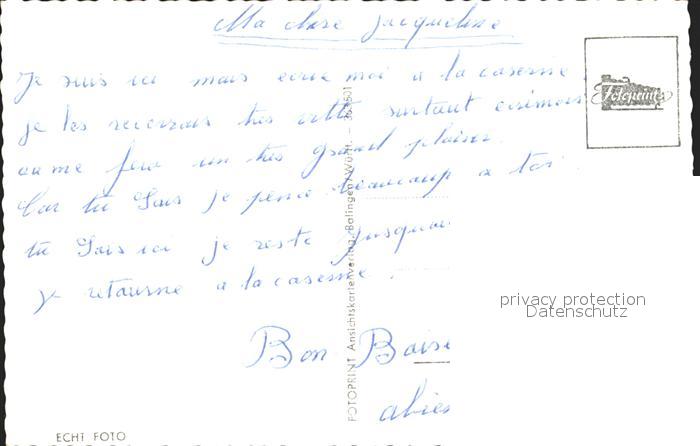 Ma chère Jacqueline
Je suis ici mais écrie moi a la caserne
je les recevrais très vitte surtout écrimoi
ça me fera un très grand plaisir
Car tu Sais je pense beaucoup a toi
tu Sais ici je reste jusquau
je retourne a la caserne.
Bon Baise
FOTOPRINT Ansichtskartenverlag, Balingen/Württ. –
Fotoprint
privacy protection
Datenschutz
ECHT FOTO